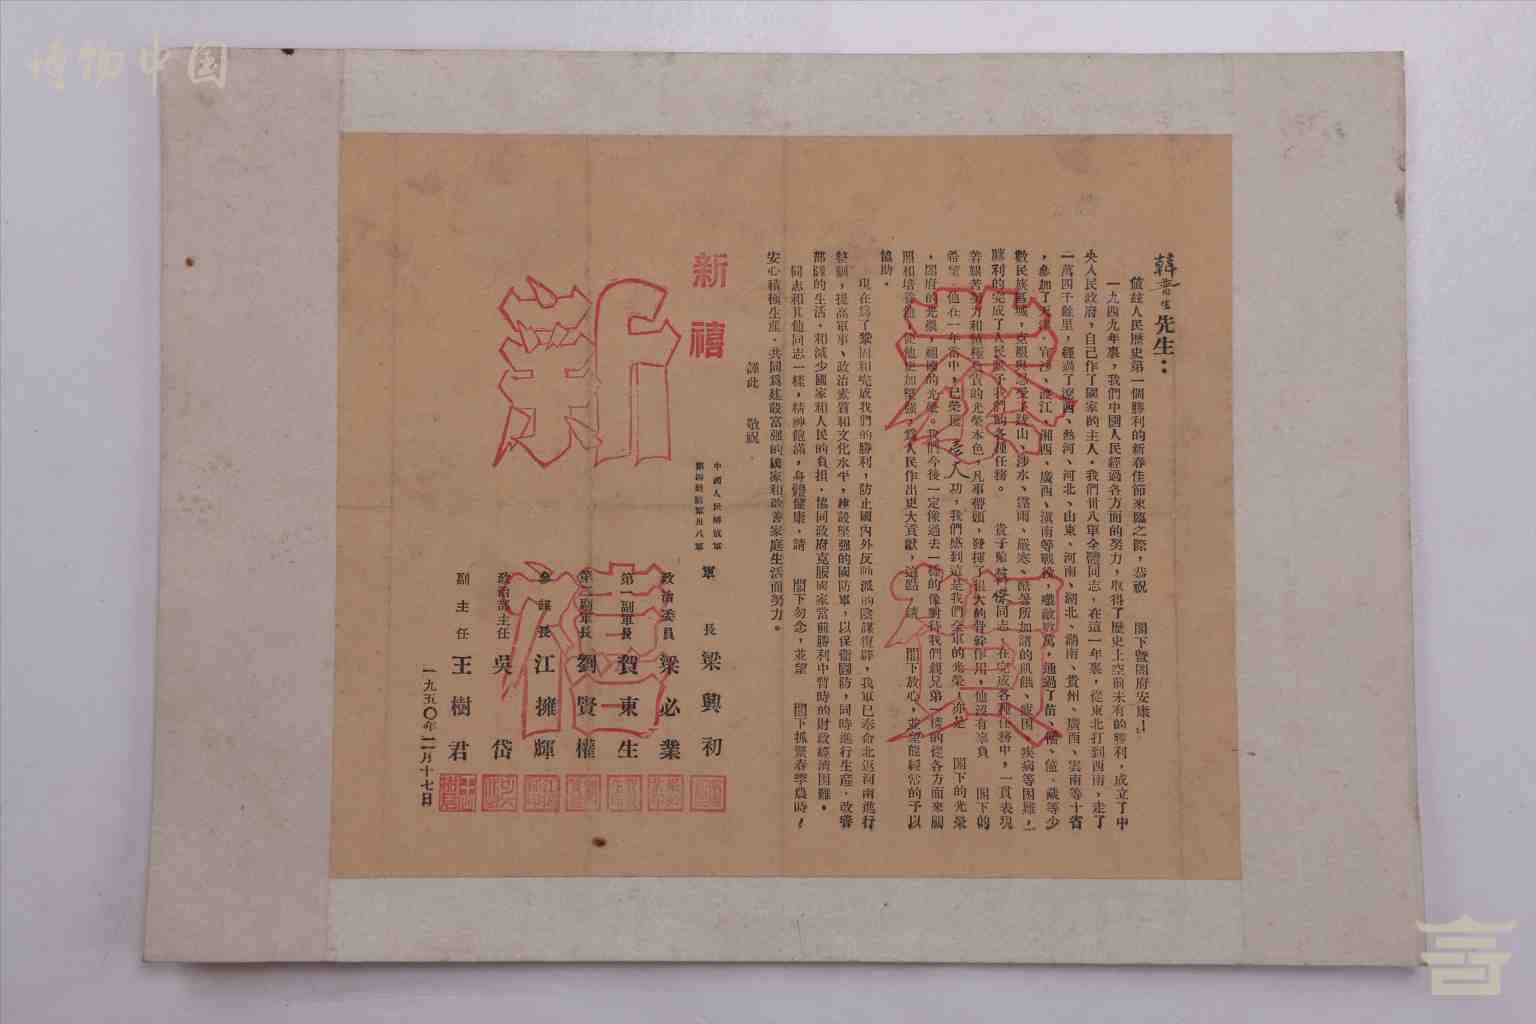 博物中国
先生：
值茲人民歷史第一個勝利的新春佳節來臨之際，恭祝 閣下暨閤府安康！
一九四九年裏，我們中國人民經過各方面的努力，取得了歷史上空前未有的勝利，成立了中
央人民政府，自己作了國家的主人。我們卅八軍全體同志，在這一年裏，從東北打到西南，走了
一萬四千餘里，經過了遼西、熱河、河北、山東、河南、湖北、湖南、貴州、廣西、雲南等十省
，參加了天津、宜沙、渡江、湘西、廣西、滇南等戰役，殲敵數萬，通過了苗、傜、僮、藏等少
數民族區域，克服與忍受了跋山、涉水、霪雨、嚴寒、酷暑所加諸的飢餓、疲困、疾病等困難，
勝利的完成了人民給予我們的各種任務。 貴子弟 傑同志，在完成各種任務中，一貫表現
若艱苦努力和積極負責的光榮本色，凡事帶頭，發揮了很大的骨幹作用，他沒有辜負 閣下的
希望。他在一年當中，已榮獲 壹大功，我們感到這是我們全軍的光榮，亦是 閣下的光榮
，閤府的光榮，祖國的光榮。我們今後一定像過去一樣的像對待我們親兄弟一樣的從各方面來關
照和培養他，使他更加堅強，為人民作出更大貢獻，這點，請 閣下放心，並望能經常的予以
協助。
現在為了鞏固和完成我們的勝利，防止國內外反動派的陰謀復辟，我軍已奉命北返河南進行
整訓，提高軍事、政治素質和文化水平，建設堅強的國防軍，以保衛國防，同時進行生產，改善
部隊的生活，和減少國家和人民的負担，協同政府克服國家當前勝利中暫時的財政經濟困難。
同志和其他同志一樣，精神飽滿，身體健康，請 閣下勿念，並望 閣下抓緊春季農時，
安心積極生產，共同為建設富强的國家和改善家庭生活而努力。
謹此 敬祝
新禧
中國人民解放軍
第四野戰軍卅八軍
軍長 梁興初
政治委員 梁必業
第一副軍長 賀東生
第二副軍長 劉賢權
參謀長 江擁輝
政治部主任 吳岱
副主任 王樹君
一九五〇年二月十七日
恭賀
新禧